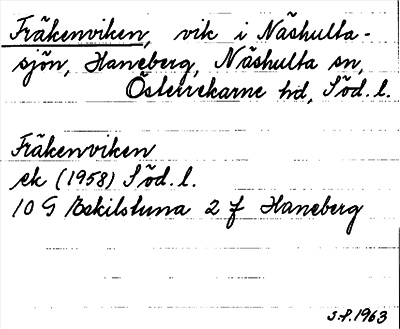 Fräkenviken, vik i Näshulta-
sjön, Haneberg, Näshulta sn,
Österrekarne hd, Söd. l.
Fräkenviken
ek (1958) Söd. l.
10 G Eskilstuna 2 f Haneberg
S.P. 1963